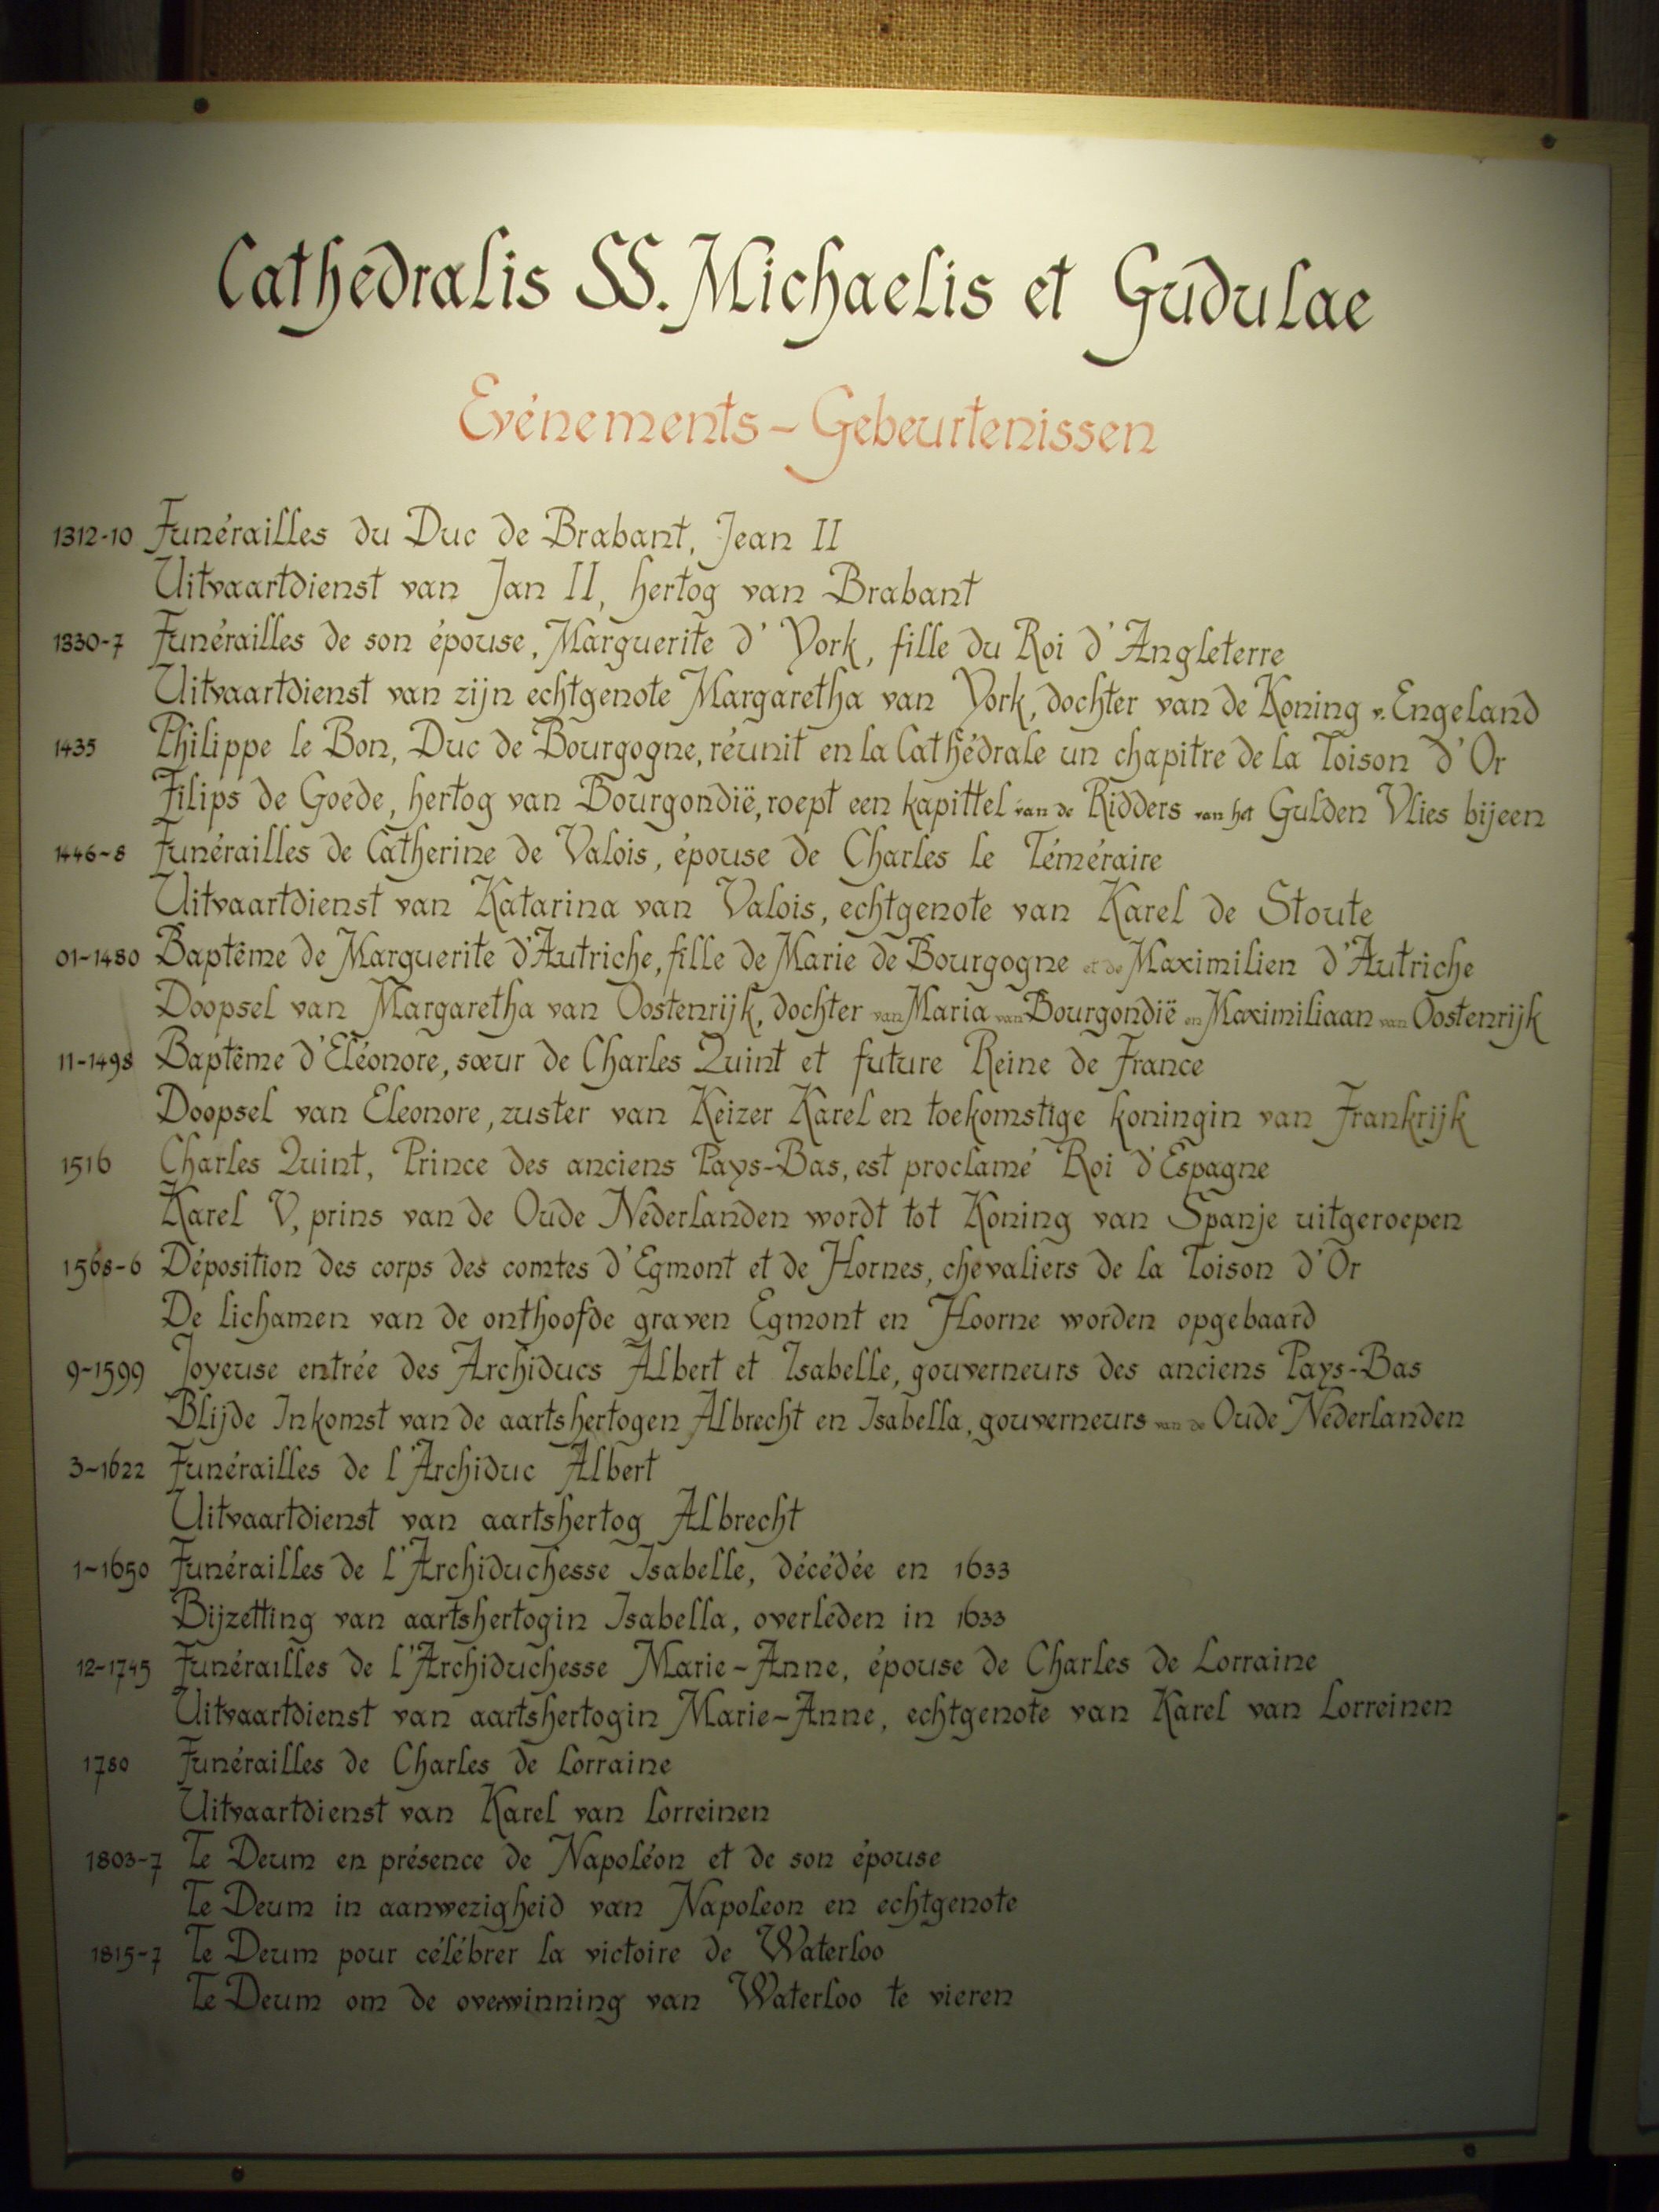 Cathedralis SS. Michaelis et Gudulae
Evénements - Gebeurtenissen
1312-10 Funérailles du Duc de Brabant, Jean II
Uitvaartdienst van Jan II, hertog van Brabant
1330-7 Funérailles de son épouse, Marguerite d'York, fille du Roi d'Angleterre
Uitvaartdienst van zijn echtgenote Margaretha van York, dochter van de Koning v. Engeland
1435 Philippe le Bon, Duc de Bourgogne, réunit en la Cathédrale un chapitre de la Toison d'Or
Filips de Goede, hertog van Bourgondië, roept een kapittel van de Ridders van het Gulden Vlies bijeen
1446-8 Funérailles de Catherine de Valois, épouse de Charles le Téméraire
Uitvaartdienst van Katarina van Valois, echtgenote van Karel de Stoute
01-1480 Baptême de Marguerite d'Autriche, fille de Marie de Bourgogne et de Maximilien d'Autriche
Doopsel van Margaretha van Oostenrijk, dochter van Maria van Bourgondië en Maximiliaan van Oostenrijk
11-1498 Baptême d'Eléonore, sœur de Charles Quint et future Reine de France
Doopsel van Eleonore, zuster van Keizer Karel en toekomstige koningin van Frankrijk
1516 Charles Quint, Prince des anciens Pays-Bas, est proclamé Roi d'Espagne
Karel V, prins van de Oude Nederlanden wordt tot Koning van Spanje uitgeroepen
1568-6 Déposition des corps des comtes d'Egmont et de Hornes, chevaliers de la Toison d'Or
De lichamen van de onthoofde graven Egmont en Hoorne worden opgebaard
9-1599 Joyeuse entrée des Archiducs Albert et Isabelle, gouverneurs des anciens Pays-Bas
Blijde Inkomst van de aartshertogen Albrecht en Isabella, gouverneurs van de Oude Nederlanden
3-1622 Funérailles de l'Archiduc Albert
Uitvaartdienst van aartshertog Albrecht
1-1650 Funérailles de l'Archiduchesse Isabelle, décédée en 1633
Bijzetting van aartshertogin Isabella, overleden in 1633
12-1745 Funérailles de l'Archiduchesse Marie-Anne, épouse de Charles de Lorraine
Uitvaartdienst van aartshertogin Marie-Anne, echtgenote van Karel van Lorreinen
1780 Funérailles de Charles de Lorraine
Uitvaartdienst van Karel van Lorreinen
1803-7 Te Deum en présence de Napoléon et de son épouse
Te Deum in aanwezigheid van Napoleon en echtgenote
1815-7 Te Deum pour célébrer la victoire de Waterloo
Te Deum om de overwinning van Waterloo te vieren